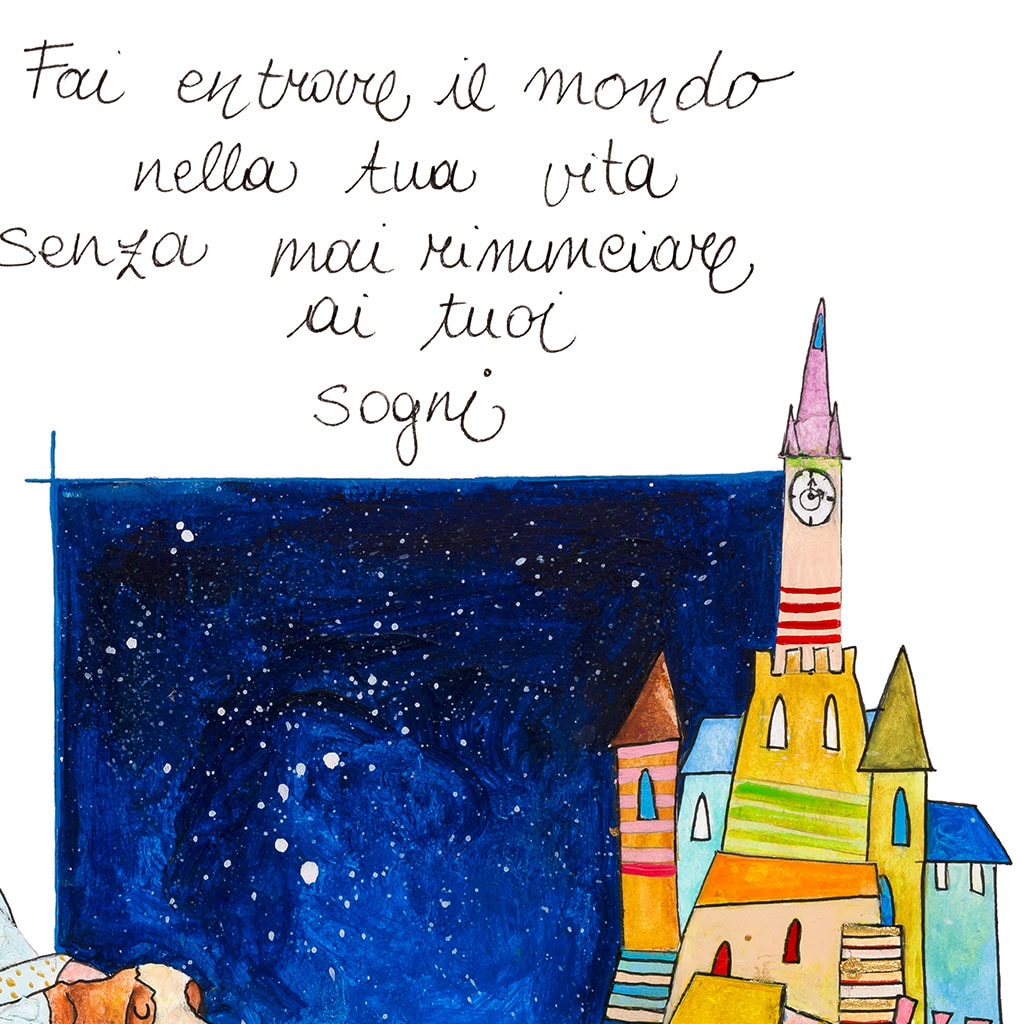 Fai entrare il mondo
nella tua vita
senza mai rinunciare
ai tuoi
sogni